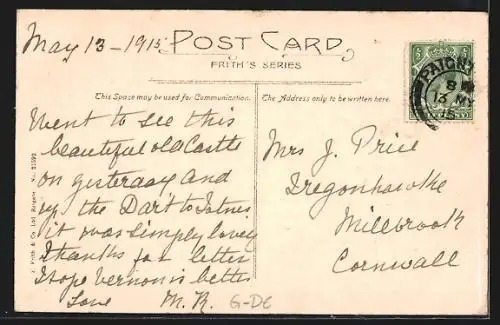 May 13 - 1915
POST CARD
FRITH'S SERIES
This Space may be used for Communication.
The Address only to be written here.
PAIGN
8
13 MY
15
Went to see this
beautiful old Castle
on yesterday and
up the Dart to Totnes
it was simply lovely
Thanks for letter
I hope Vernon is better
Love M.R.
G-DE
Mrs J. Price
Tregonhawke
Millbrook
Cornwall
F. Frith & Co. Ltd. Reigate.